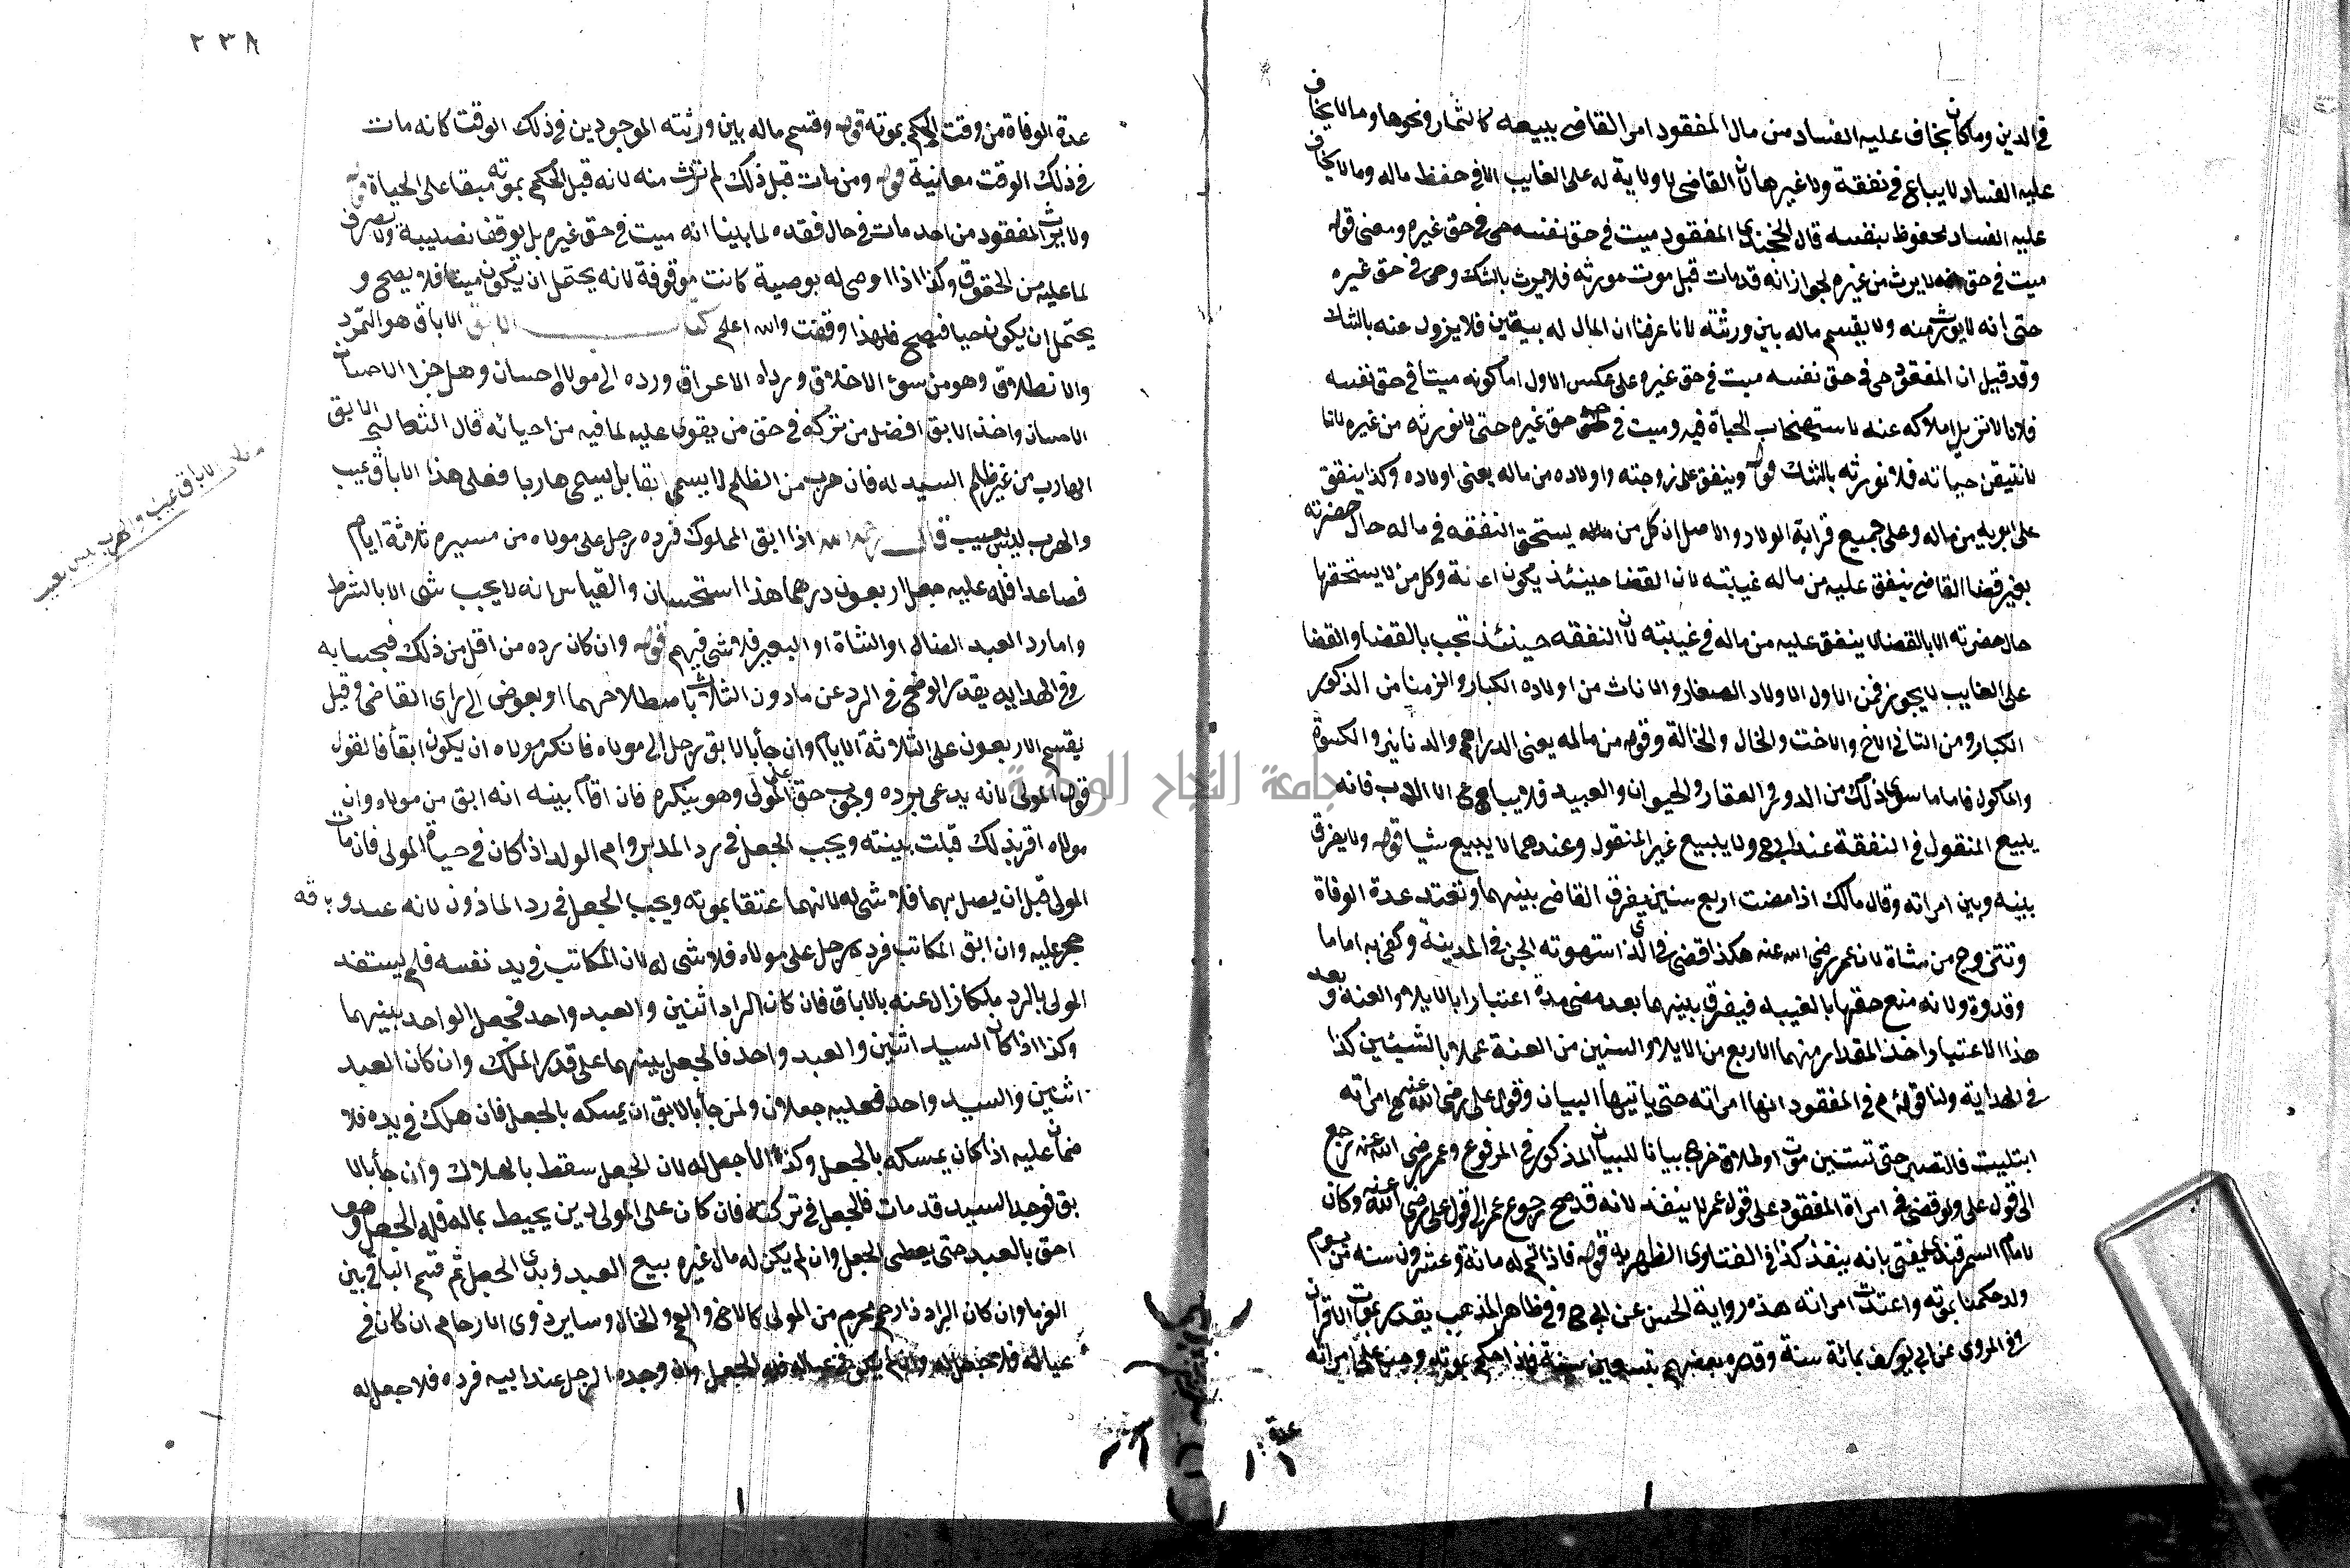 في الدين وما كان يخاف عليه الفساد من مال المفقود امر القاضي ببيعه كالثمار ونحوها وما لا يخاف
عليه الفساد لا يباع في نفقة ولا غيرها لان القاضي لا ولاية له على الغايب الا في حفظ ماله وما لا يخاف
عليه الفساد محفوظ بنفسه قال الخجندي المفقود ميت في حق نفسه حي في حق غيره ومعنى قوله
ميت في حق لا يرث من غيره لجواز انه قد مات قبل موت مورثه فلا يرث بالشك وحي في حق غيره
حتى انه لا يورث منه ولا يقسم ماله بين ورثته لانا عرفنا ان المال له بيقين فلا يزول عنه بالشك
وقد قيل ان المفقود حي في حق نفسه ميت في حق غيره على عكس الاول اما كونه ميتا في حق نفسه
فلانا لا نزيل املاكه عنه لاستصحاب الحياة فيه وميت في حق غيره حتى لا نورثه من غيره لانا
لا نتيقن حياته فلا نورثه بالشك قوله وينفق على زوجته واولاده من ماله يعني اولاده وكذا ينفق
على ابويه من ماله وعلى جميع قرابة الولاد والاصل ان كل من يستحق النفقه في ماله حال حضرته
بغير قضا القاضي ينفق عليه من ماله غيبته لان القضا حينئذ يكون اعانة وكل من لا يستحقها
حال حضرته الا بالقضا لا ينفق عليه من ماله في غيبته لان النفقه حينئذ تجب بالقضا والقضا
على الغايب لا يجوز فمن الاول الاولاد الصغار والاناث من اولاده الكبار والزمنا من الذكور
الكبار ومن الثاني الاخ والاخت والخال والخالة وقوله من ماله يعني الدراهم والدنانير والكسوة
والماكول فاما ما سوى ذلك من الدور والعقار والحيوان والعبيد فلا يباع الا الاب فانه
يبيع المنقول في النفقة عند ابي ح ولا يبيع غير المنقول وعندهما لا يبيع شيا قوله ولا يفرق
بينه وبين امراته وقال مالك اذا مضت اربع سنين يفرق القاضي بينهما وتعتد عدة الوفاة
وتتزوج من شاة لان عمر رضي الله عنه هكذا قضى في الذي استهوته الجن في المدينة وكفى به اماما
وقدوة ولانه منع حقها بالغيبه فيفرق بينهما بعد مضي مدة اعتبارا بالايلا والعنة وبعد
هذا الاعتبار اخذ المقدار منهما الاربع من الايلا والسنين من العنة عملا بالشبهين كذا
في الهداية ولنا قوله ءم في المفقود انها امراته حتى ياتيها البيان وقول علي رضي الله عنه هي امراته
ابتليت فلتصبر حتى تستبين موت او طلاق خرج بيانا للبيان المذكور في المرفوع وعمر رضي الله عنه رجع
الى قول علي ولو قضى في امراة المفقود على قول عمر لا ينفذ لانه قد صح رجوع عمر الى قول علي رضي الله عنه وكان
لامام السمرقندي يفتي بانه ينفذ كذا في الفتاوى الظهريه قوله فاذا تم له مائة وعشرون سنه من يوم
ولد حكمنا بموته واعتدت امراته هذه رواية الحسن عن ابي ح وفي ظاهر المذهب يقدر بموت الاقران
وفي المروي عن ابي يوسف بمائة سنة وقدره بعضهم بتسعين سنة فاذا حكم بموته وجبت على امراته
عدة
٢٣٨
عدة الوفاة من وقت الحكم بموته قوله وقسم ماله بين ورثته الموجودين في ذلك الوقت كانه مات
في ذلك الوقت معاينة قوله ومن مات قبل ذلك لم ترث منه لانه قبل الحكم بموته مبقا على الحياة قوله
ولا يرث المفقود من احد مات في حال فقده لما بينا انه ميت في حق غيره بل يوقف نصيبه ولا يصرف
لما عليه من الحقوق وكذا اذا اوصى له بوصية كانت موقوفة لانه يحتمل ان يكون ميتا فلا يصح و
يحتمل ان يكون حيا فيصح فلهذا وقفت والله اعلم كتاب الابق الاباق هو التمرد
والانطلاق وهو من سوء الاخلاق ورداه الاعراق ورده الى مولاه احسان وهل جزا الاحسان
الاحسان واخذ الابق افضل من تركه في حق من يقوى عليه لما فيه من احيائه قال الثعالبي الابق
الهارب من غير ظلم السيد له فان هرب من الظلم لا يسمى ابقا بل يسمى هاربا فعلى هذا الاباق عيب
والهرب ليس بعيب قال رحمه الله اذا ابق المملوك فرده رجل على مولاه من مسيره ثلاثة ايام
فصاعدا فله عليه جعل اربعون درهما هذا استحسان والقياس انه لا يجب شى الا بالشرط
واما رد العبد الضال او الشاة او البعير فلا شى فيهم قوله وان كان رده من اقل من ذلك فبحسابه
وفي الهدايه يقدر الرضخ في الرد عن ما دون الثلاث باصطلاحهما او بعوض الى راى القاضي وقيل
يقسم الاربعون على الثلاثة الايام وان جا بالابق رجل الى مولاه فانكر مولاه ان يكون ابقا فالقول
قول المولى لانه يدعي برده وجوب حق على المولى وهو ينكره فان اقام بينه انه ابق من مولاه وان
مولاه اقر بذلك قبلت بينته ويجب الجعل في رد المدبر وام الولد اذا كان في حياة المولى فان مات
المولى قبل ان يصل بهما فلا شى له لانهما عتقا بموته ويجب الجعل في رد الماذون لانه عبد وباقه
حجر عليه وان ابق المكاتب فرده رجل على مولاه فلا شى له لان المكاتب في يد نفسه فلم يستفد
المولى بالرد ملكا زال عنه بالاباق فان كان الراد اثنين والعبد واحد فجعل الواحد بينهما
وكذا اذا كان السيد اثنين والعبد واحد فالجعل بينهما على قدر الملك وان كان العبد
اثنين والسيد واحد فعليه جعلان ولمن جا بالابق ان يمسكه بالجعل فان هلك في يده فلا
ضمان عليه اذا كان يمسكه بالجعل وكذا لا جعل له لان الجعل سقط بالهلاك وان جا بالا
بق فوجد السيد قد مات فالجعل في تركته فان كان على المولى دين يحيط بماله فله الجعل وهو
احق بالعبد حتى يعطى الجعل وان لم يكن له مال غيره بيع العبد وبدى الجعل ثم قسم الباقي بين
الغرما وان كان الراد ذا رحم محرم من المولى كالاخ والعم والخال وساير ذوى الارحام ان كان في
عياله فلا جعل له وان لم يكن في عياله فله الجعل وان وجده الرجل عند ابيه فرده فلا جعل له
الاباق عيب والهرب ليس بعيب
جامعة النجاح الوطنية